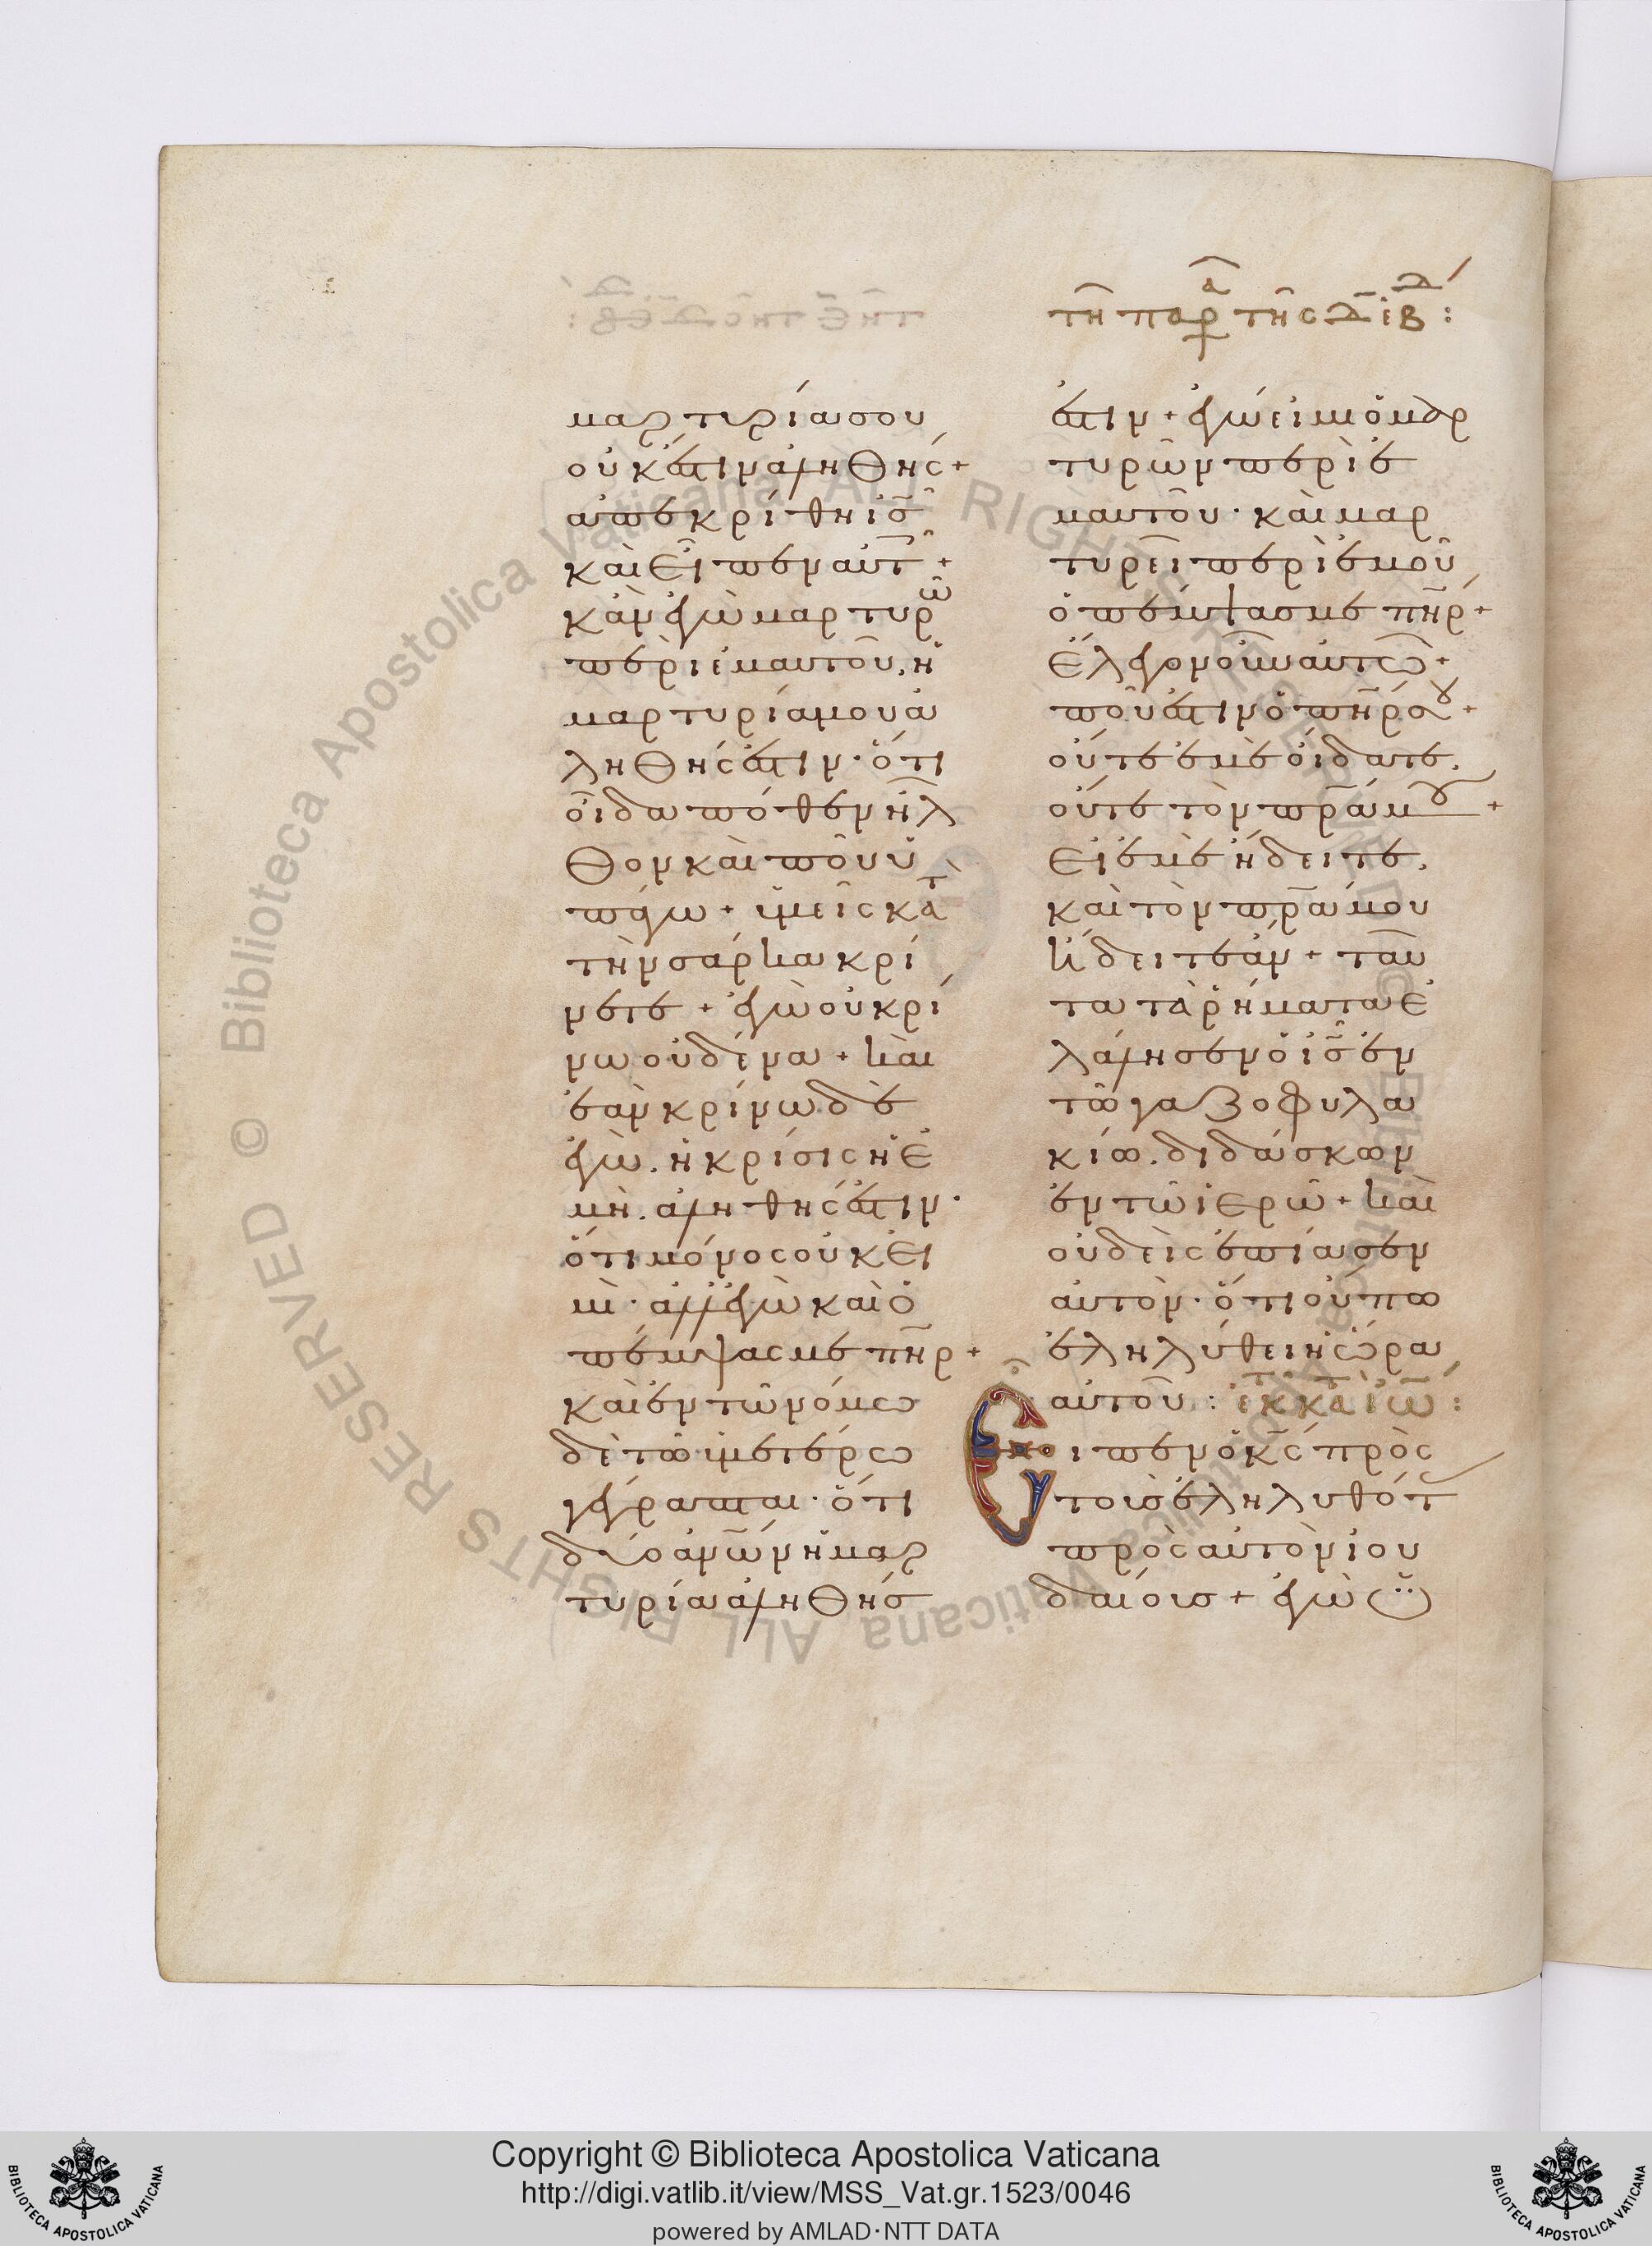 τῆ παρα τῆς δ ιβ :
μαρτυρία σου
οὐκ ἔστιν ἀληθής +
ἀπεκρίθη ὁ ις
καὶ εἶπεν αὐτ +
κἂν ἐγὼ μαρτυρῶ
περὶ ἐμαυτοῦ, ἡ
μαρτυρία μου ἀ
ληθής ἐστιν · ὅτι
οἶδα πόθεν ἦλ
θον καὶ ποῦ ὑ
πάγω + ὑμεῖς κατὰ
τὴν σάρκα κρί
νετε + ἐγὼ οὐ κρί
νω οὐδένα + καὶ
ἐὰν κρίνω δὲ
ἐγὼ. ἡ κρίσις ἡ ἐ
μὴ. ἀληθής ἐστιν ·
ὅτι μόνος οὐκ εἰ
μὶ · ἀλλ' ἐγὼ καὶ ὁ
πέμψας με πηρ +
καὶ ἐν τῶ νόμω
δὲ τῶ ὑμετέρω
γέγραπται · ὅτι
δύο ἀνων ἡ μαρ
τυρία ἀληθής
ἐστιν + ἐγώ εἰμι ὁ μαρ
τυρῶν περὶ ἐ
μαυτοῦ · καὶ μαρ
τυρεῖ περὶ ἐμοῦ
ὁ πέμψας με πηρ +
ἔλεγον οὖν αὐτῶ +
ποῦ ἐστιν ὁ πηρ σου +
οὔτε ἐμὲ οἴδατε,
οὔτε τὸν πρα μου +
εἰ ἐμὲ ἤδειτε,
καὶ τὸν πρα μου
ἤδειτε ἄν + ταῦ
τα τὰ ῥήματα ἐ
λάλησεν ὁ ις ἐν
τῶ γαζοφυλα
κίω. διδάσκων
ἐν τῶ ἱερῶ + καὶ
οὐδεὶς ἐπίασεν
αὐτὸν · ὅτι οὔπω
ἐληλύθει ἡ ὥρα
αὐτοῦ : ἐκ κατ ἰω :
Εἶπεν ὁ κς πρὸς
τοὺς ἐληλυθότ
πρὸς αὐτὸν ἰου
δαίους + ἐγὼ ὑ
Copyright © Biblioteca Apostolica Vaticana
http://digi.vatlib.it/view/MSS_Vat.gr.1523/0046
powered by AMLAD·NTT DATA
BIBLIOTECA APOSTOLICA VATICANA
BIBLIOTECA APOSTOLICA VATICANA
© Biblioteca Apostolica Vaticana ALL RIGHTS RESERVED © Biblioteca Apostolica Vaticana ALL RIGHTS RESERVED